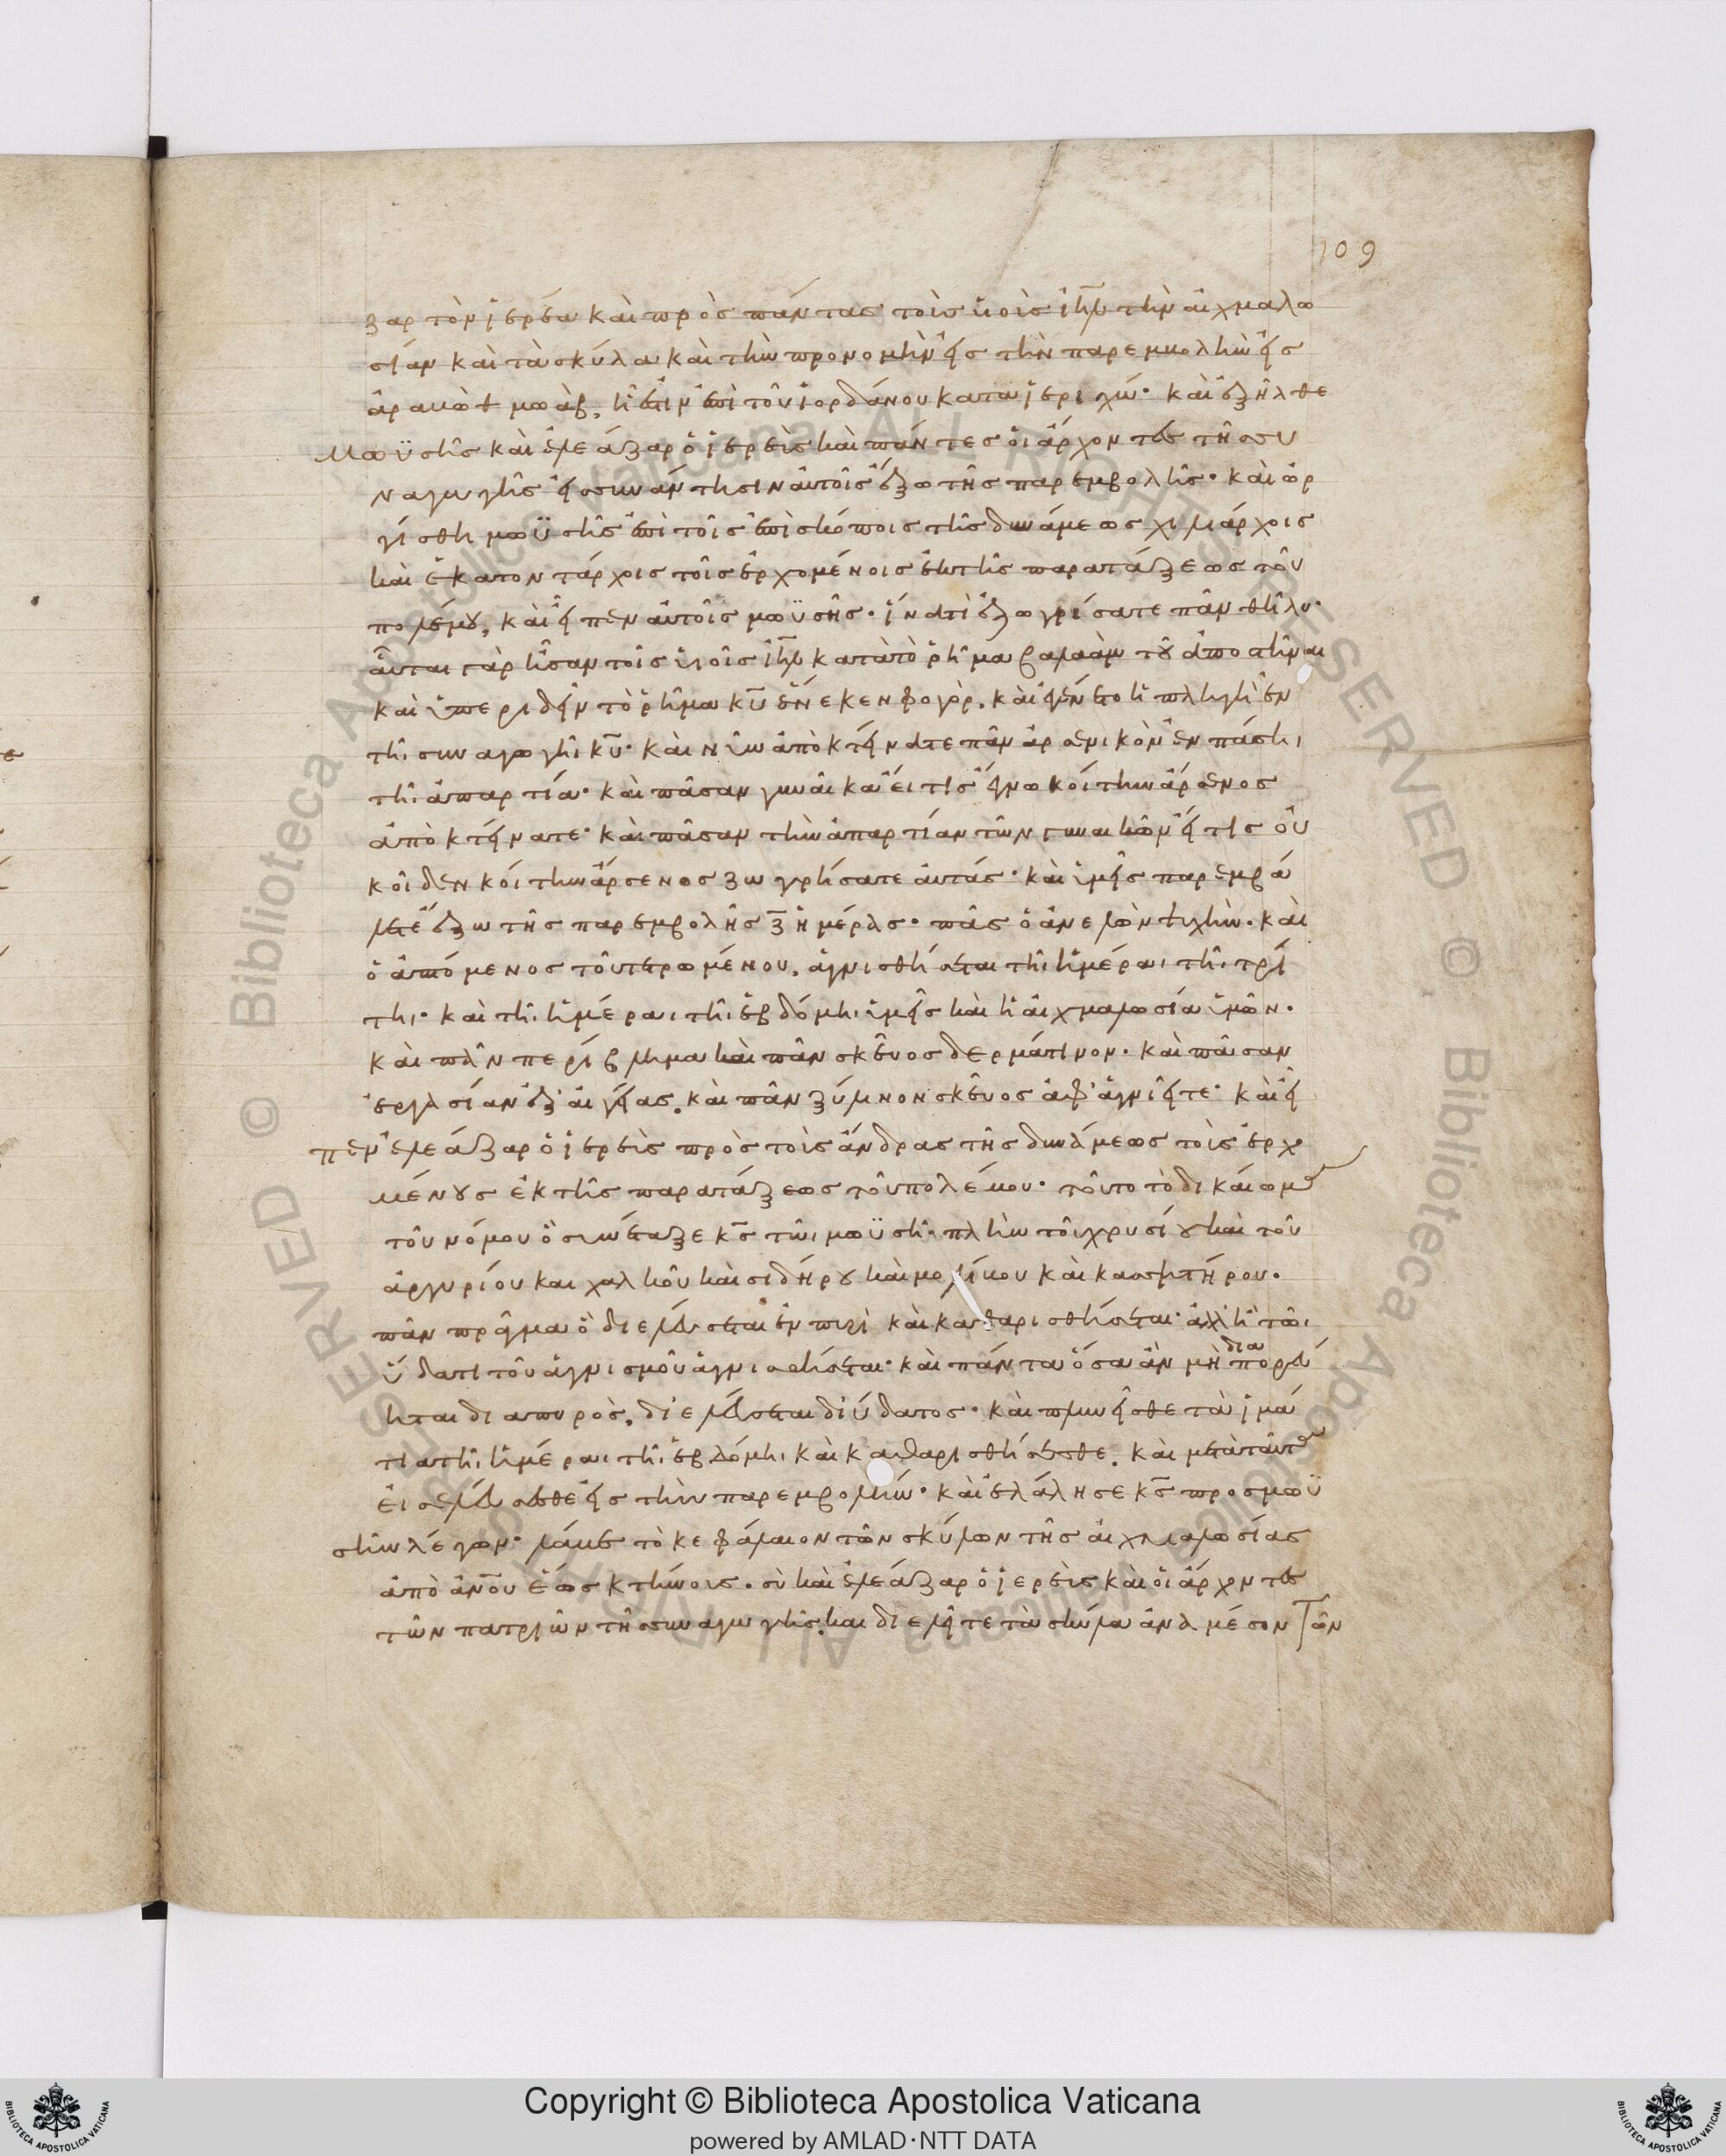 109
ζαρ τὸν ἱερέα καὶ πρὸς πάντας τοὺς υἱοὺς ιηλ τὴν αἰχμαλω
σίαν καὶ τὰ σκῦλα καὶ τὴν προνομὴν εἰς τὴν παρεμβολὴν εἰς
ἀραβὼθ μωάβ, ἥ ἐστιν ἐπὶ τοῦ ἰορδάνου κατα ἱεριχώ· καὶ ἐξῆλθε
Μωϋσῆς καὶ ἐλεάζαρ ὁ ἱερεὺς καὶ πάντες οἱ ἄρχοντες τῆς συ
ναγωγῆς εἰς συνάντησιν αὐτοῖς ἔξω τῆς παρεμβολῆς· καὶ ὠρ
γίσθη μωϋσῆς ἐπὶ τοῖς ἐπισκόποις τῆς δυνάμεως χιλιάρχοις
καὶ ἑκατοντάρχοις τοῖς ἐρχομένοις ἐκ τῆς παρατάξεως τοῦ
πολέμου, καὶ εἶπεν αὐτοῖς μωϋσῆς· ἵνατί ἐζωγρίσατε πᾶν θῆλυ·
αὗται γὰρ ἦσαν τοῖς υἱοῖς ιηλ κατὰ τὸ ῥῆμα βαλαὰμ τοῦ ἀποστῆναι
καὶ ὑπεριδεῖν τὸ ῥῆμα κυ ἕνεκεν φογόρ. καὶ ἐγένετο ἡ πληγὴ ἐν
τῆι συναγωγῆι κυ· καὶ νῦν ἀποκτείνατε πᾶν ἀρσενικὸν ἐν πάσηι
τῆι ἀπαρτία· καὶ πᾶσαν γυναῖκα εἴ τις ἔγνω κοίτην ἄρσενος
ἀποκτείνατε· καὶ πᾶσαν τὴν ἀπαρτίαν τῶν γυναικῶν εἴ τις οὐ
κ οἶδεν κοίτην ἄρσενος ζωγρήσατε αὐτάς· καὶ ὑμεῖς παρεμβά
λετε ἔξω τῆς παρεμβολῆς ζ ἡμέρας· πᾶς ὁ ἀνελὼν ψυχὴν· καὶ
ὁ ἁπτόμενος τοῦ τετρωμένου, ἁγνισθήσεται τῆι ἡμέραι τῆι τρί
τηι· καὶ τῆι ἡμέραι τῆι ἑβδόμηι ὑμεῖς καὶ ἡ αἰχμαλωσία ὑμῶν·
καὶ πᾶν περίβλημα καὶ πᾶν σκεῦος δερμάτινον· καὶ πᾶσαν
ἐργασίαν ἐξ αἰγείας, καὶ πᾶν ξύλινον σκεῦος ἀφαγνιεῖτε· καὶ εἶ
πεν ἐλεάζαρ ὁ ἱερεὺς πρὸς τοὺς ἄνδρας τῆς δυνάμεως τοὺς ἐρχο
μένους ἐκ τῆς παρατάξεως τοῦ πολέμου· τοῦτο τὸ δικαίωμα
τοῦ νόμου ὃ συνέταξε κς τῶι μωϋσῆ· πλὴν τοῦ χρυσίου καὶ τοῦ
ἀργυρίου και χαλκοῦ καὶ σιδήρου καὶ μολίβου καὶ κασσιτήρου·
πᾶν πρᾶγμα ὃ διελεύσεται ἐν πυρὶ καὶ καθαρισθήσεται· ἀλλ ἢ τῶι
ὕδατι τοῦ ἁγνισμοῦ ἁγνισθήσεται· καὶ πάντα ὅσα ἂν μὴ διαπορεύ
ηται δια πυρὸς, διελεύσεται δι ὕδατος· καὶ πλυνεῖσθε τὰ ἱμά
τια τῆι ἡμέραι τῆι ἑβδόμηι καὶ καθαρισθήσεσθε, καὶ μετὰ ταῦτα
εἰσελεύσεσθε εἰς τὴν παρεμβολήν· καὶ ἐλάλησε κς προς μωϋ
σῆν λέγων· λάβετε τὸ κεφάλαιον τῶν σκύλων τῆς αἰχμαλωσίας
ἀπὸ ανου ἕως κτήνους· σὺ καὶ ἐλεάζαρ ὁ ἱερεὺς καὶ οἱ ἄρχοντες
τῶν πατριῶν τῆς συναγωγῆς, και διελεῖτε τὰ σκύλα ἀνὰ μέσον τῶν
Copyright © Biblioteca Apostolica Vaticana
powered by AMLAD·NTT DATA